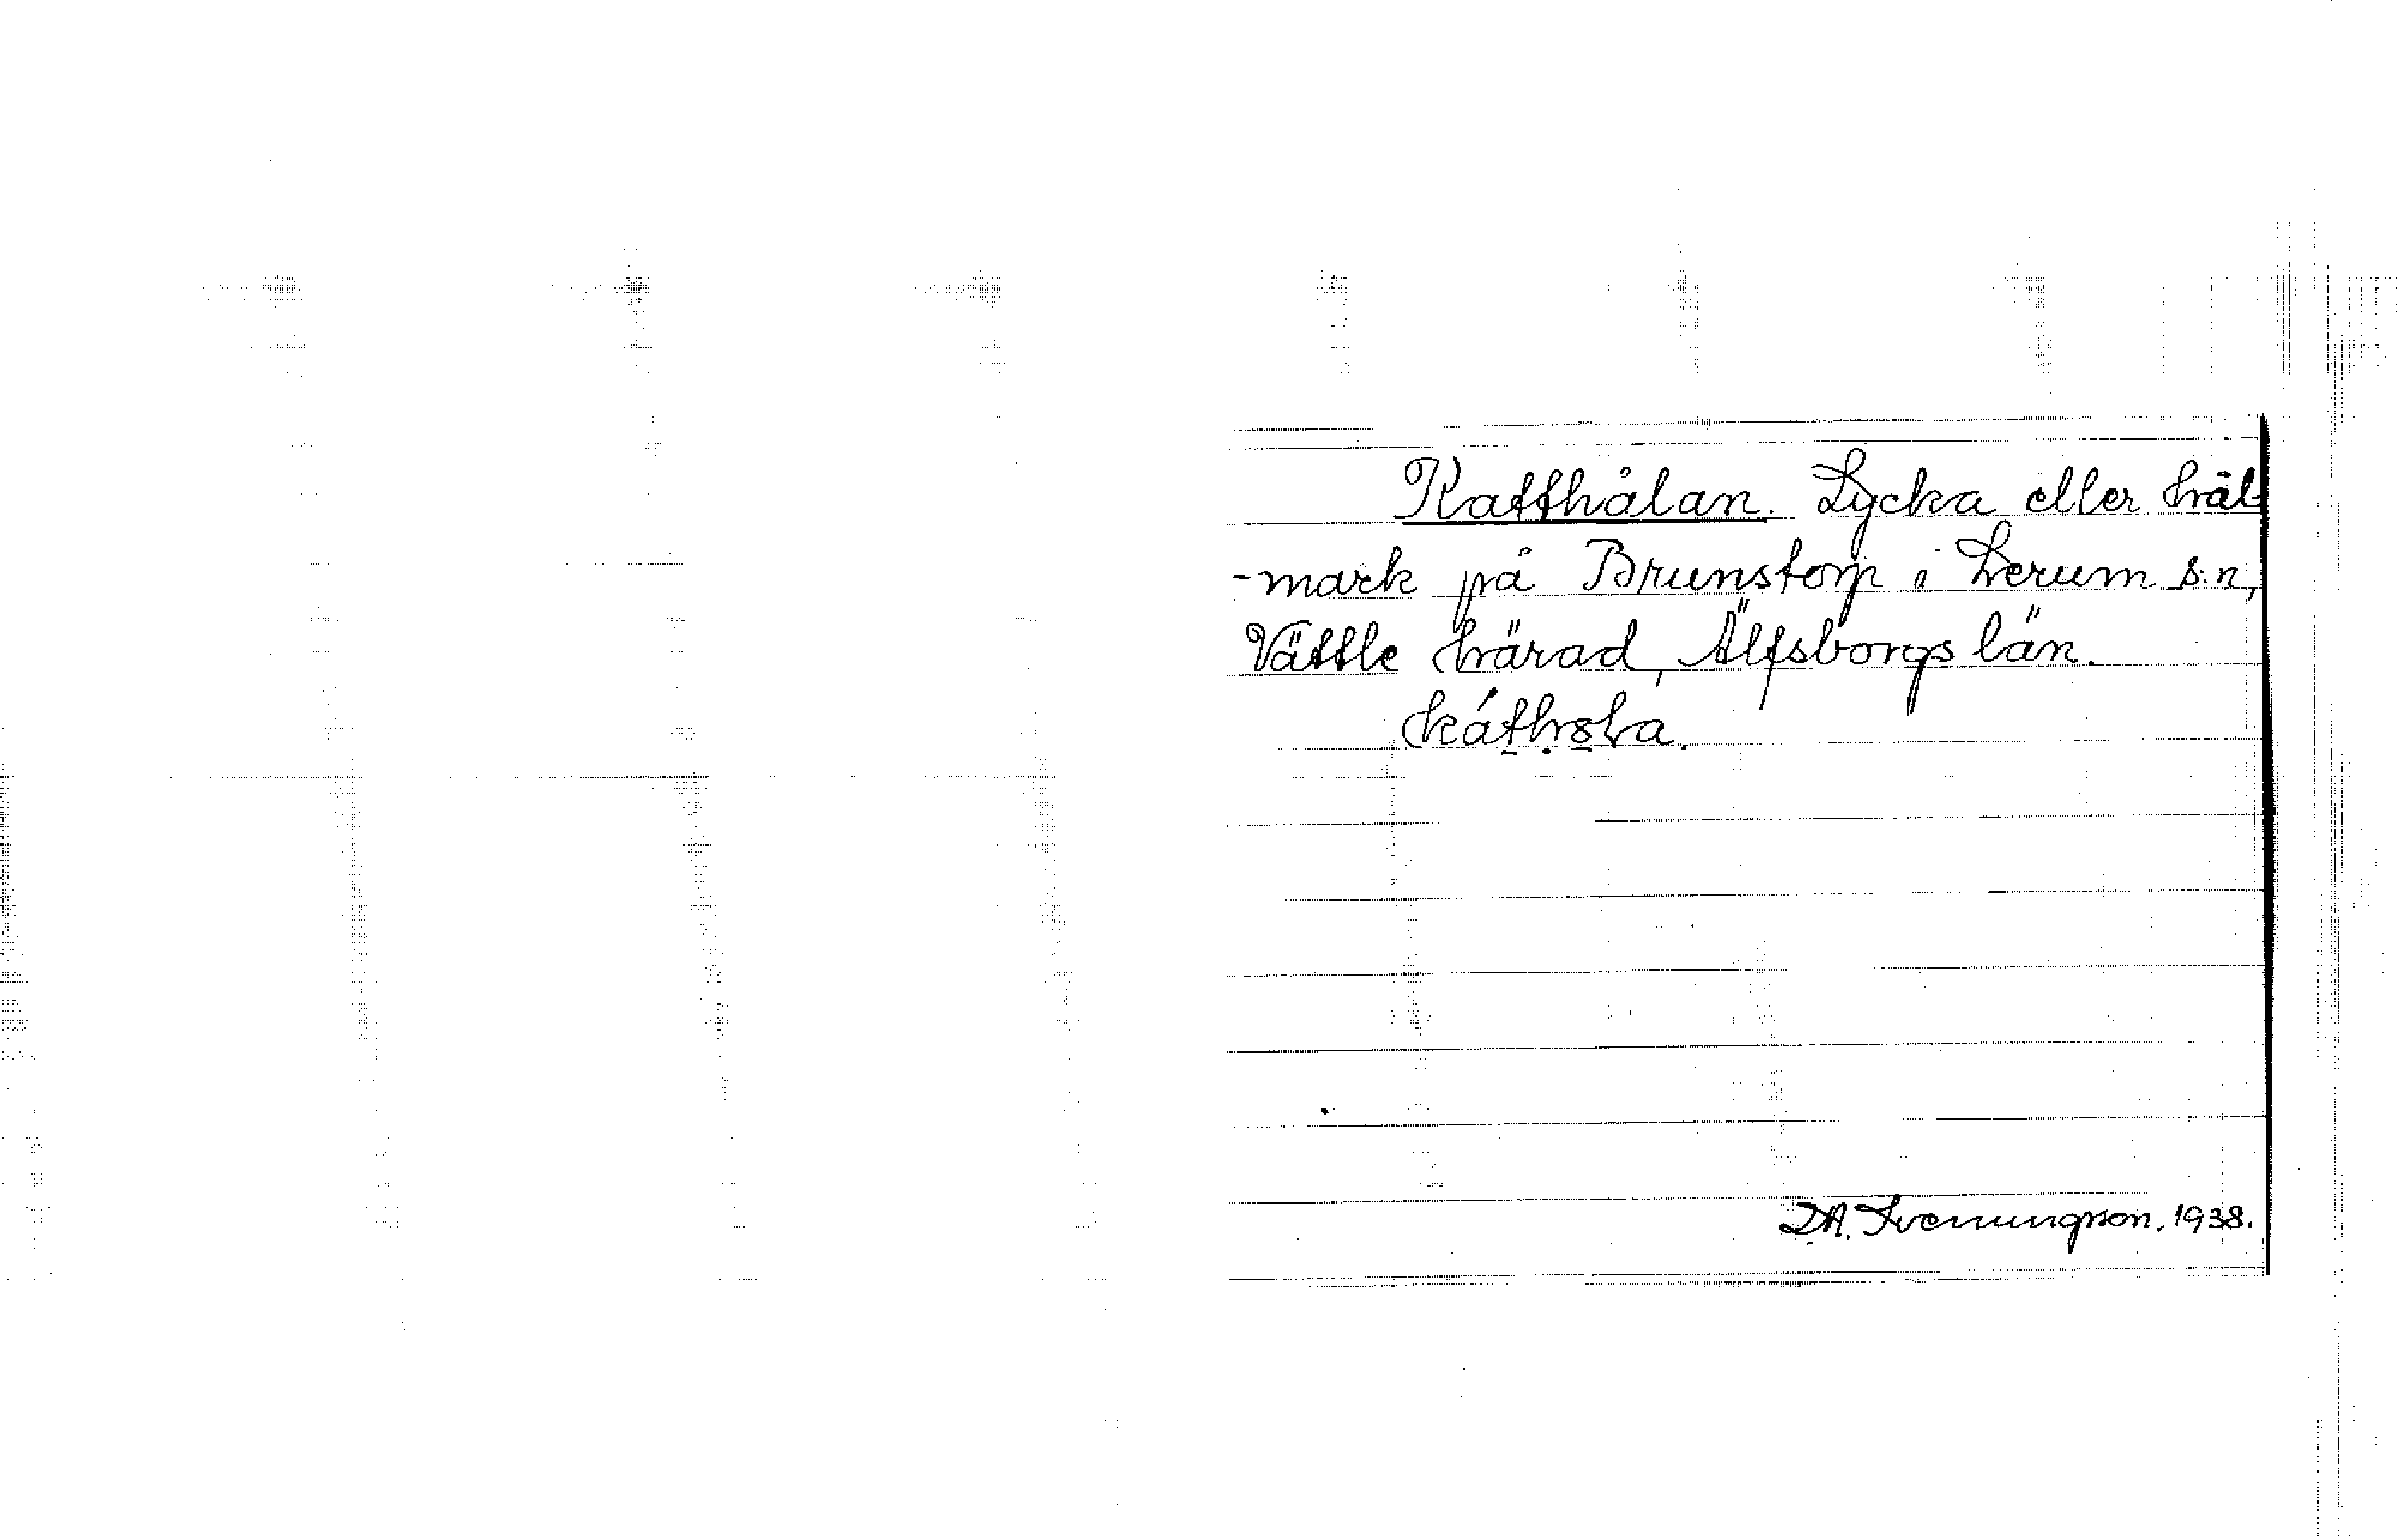 Katthålan. Lycka eller hål
-mark på Brunstorp i Lerum s:n,
Vättle härad, Älfsborgs län.
D.A. Svenningson. 1938.